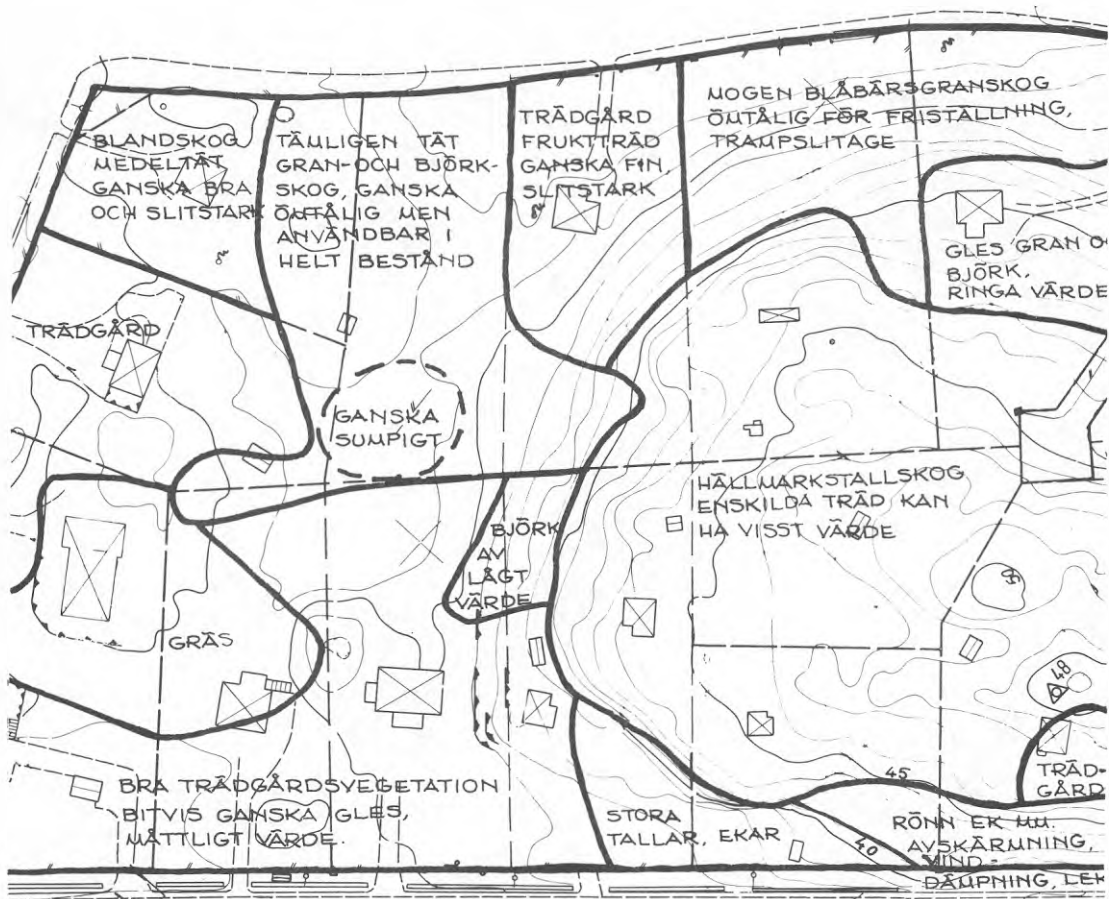 BLANDSKOG
MEDELTÄT
GANSKA BRA
OCH SLITSTARK
TÄMLIGEN TÄT
GRAN- OCH BJÖRK-
SKOG, GANSKA
ÖMTÅLIG MEN
ANVÄNDBAR I
HELT BESTÅND
TRÄDGÅRD
FRUKTTRÄD
GANSKA FIN,
SLITSTARK
MOGEN BLÅBÄRSGRANSKOG
ÖMTÅLIG FÖR FRISTÄLLNING,
TRAMPSLITAGE
GLES GRAN O
BJÖRK,
RINGA VÄRDE
TRÄDGÅRD
GANSKA
SUMPIGT
HÄLLMARKSTALLSKOG
ENSKILDA TRÄD KAN
HA VISST VÄRDE
BJÖRK
AV
LÅGT
VÄRDE
50
GRÄS
48
BRA TRÄDGÅRDSVEGETATION
BITVIS GANSKA GLES,
MÅTTLIGT VÄRDE.
STORA
TALLAR, EKAR
45
40
TRÄD-
GÅRD
RÖNN EK MM.
AVSKÄRMNING,
VIND-
DÄMPNING, LEK